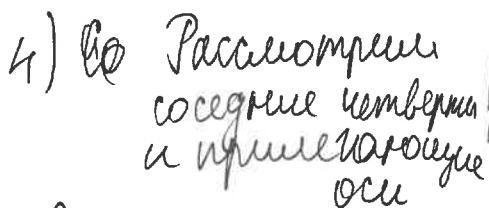 4) Рассмотрим
соседние четверти
и прилегающие
оси